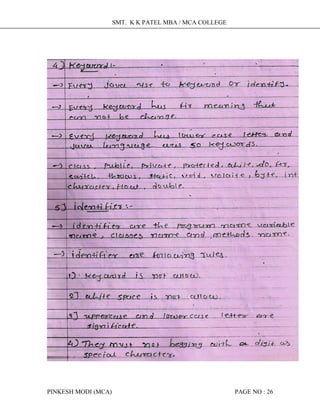 SMT. K K PATEL MBA / MCA COLLEGE
4] Keyword :-
→ Every Java use to keyword or identify.
→ Every keyword has fix meaning that
can not be change.
→ Every keyword has lower case letter and
Java language has 50 keywords.
→ class, Public, Private, protected, while, do, for,
switch, throws, static, void, volatile, byte, int
character, float, double.
5] identifier :-
→ identifier are the program name variable
name, classes name and methods name.
→ identifier are following rules.
1] keyword is not allow.
2] white space is not allow.
3] uppercase and lower case letter are
significate.
4] They must not begging with a digit as
special character.
PINKESH MODI (MCA) PAGE NO : 26